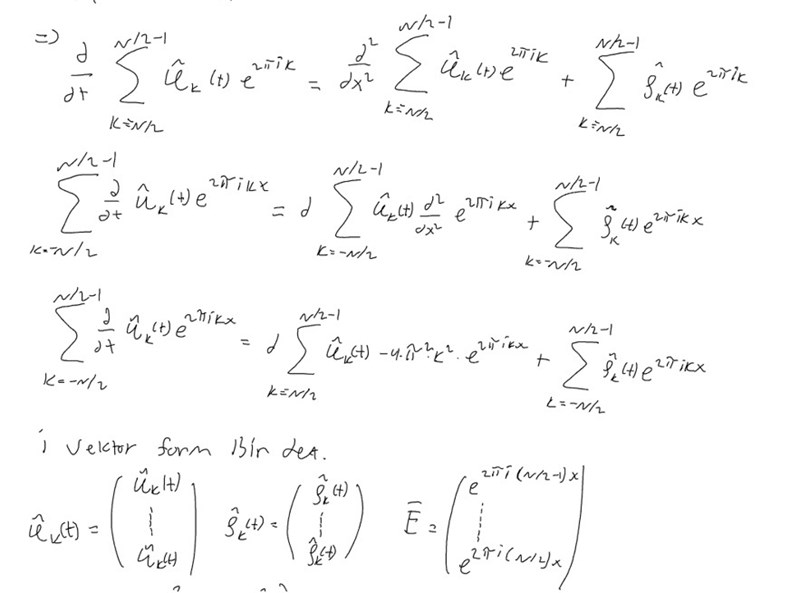 => d/dt ∑_{k=N/2}^{N/2-1} û_k(t) e^{2πik} = d²/dx² ∑_{k=N/2}^{N/2-1} û_k(t) e^{2πik} + ∑_{k=N/2}^{N/2-1} ρ̂_k(t) e^{2πik}
∑_{k=-N/2}^{N/2-1} d/dt û_k(t) e^{2πikx} = d ∑_{k=-N/2}^{N/2-1} û_k(t) d²/dx² e^{2πikx} + ∑_{k=-N/2}^{N/2-1} ρ̂_k(t) e^{2πikx}
∑_{k=-N/2}^{N/2-1} d/dt û_k(t) e^{2πikx} = d ∑_{k=N/2}^{N/2-1} û_k(t) -4·π²·k²· e^{2πikx} + ∑_{k=-N/2}^{N/2-1} ρ̂_k(t) e^{2πikx}
i vektor form Blir det.
û_k(t) = ( û_k(t) ¦ û_k(t) ) ρ̂_k(t) = ( ρ̂_k(t) ¦ ρ̂_k(t) ) E̅ = ( e^{2πi(N/2-1)x} ¦ e^{2πi(N/2)x} )